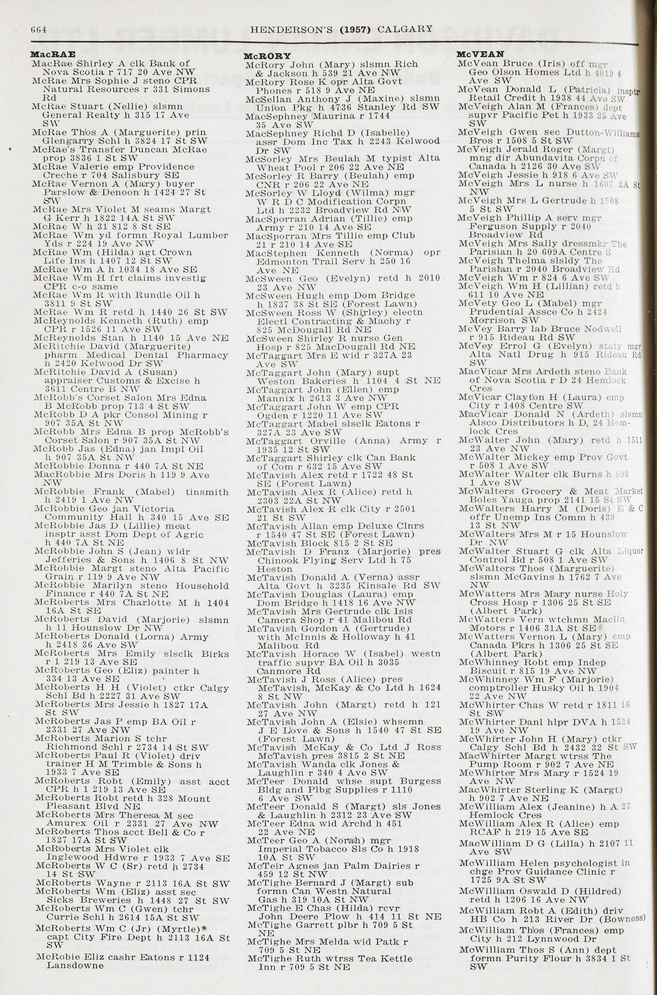 664
HENDERSON'S (1957) CALGARY
MacRAE
MacRae Shirley A clk Bank of
Nova Scotia r 717 20 Ave NW
McRae Mrs Sophie J steno CPR
Natural Resources r 331 Simons
Rd
McRae Stuart (Nellie) slsmn
General Realty h 315 17 Ave
SW
McRae Thos A (Marguerite) prin
Glengarry Schl h 3824 17 St SW
McRae's Transfer Duncan McRae
prop 3836 1 St SW
McRae Valerie emp Providence
Creche r 704 Salisbury SE
McRae Vernon A (Mary) buyer
Parslow & Denoon h 1424 27 St
SW
McRae Mrs Violet M seams Margt
G Kerr h 1822 14A St SW
McRae W h 31 812 8 St SE
McRae Wm yd formn Royal Lumber
Yds r 224 19 Ave NW
McRae Wm (Hilda) agt Crown
Life Ins h 1407 12 St SW
McRae Wm A h 1034 18 Ave SE
McRae Wm H frt claims investig
CPR c-o same
McRae Wm R with Rundle Oil h
3811 9 St SW
McRae Wm R retd h 1440 26 St SW
McReynolds Kenneth (Ruth) emp
CPR r 1526 11 Ave SW
McReynolds Stan h 1140 15 Ave NE
McRitchie David (Marguerite)
pharm Medical Dental Pharmacy
h 2420 Kelwood Dr SW
McRitchie David A (Susan)
appraiser Customs & Excise h
3611 Centre B NW
McRobb's Corset Salon Mrs Edna
B McRobb prop 713 4 St SW
McRobb D A pkr Consol Mining r
907 35A St NW
McRobb Mrs Edna B prop McRobb's
Corset Salon r 907 35A St NW
McRobb Jas (Edna) jan Impl Oil
h 907 35A St NW
McRobbie Donna r 440 7A St NE
MacRobbie Mrs Doris h 119 9 Ave
NW
McRobbie Frank (Mabel) tinsmith
h 2419 1 Ave NW
McRobbie Geo jan Victoria
Community Hall h 340 15 Ave SE
McRobbie Jas D (Lillie) meat
insptr asst Dom Dept of Agric
h 440 7A St NE
McRobbie John S (Jean) wldr
Jefferies & Sons h 1406 8 St NW
McRobbie Margt steno Alta Pacific
Grain r 119 9 Ave NW
McRobbie Marilyn steno Household
Finance r 440 7A St NE
McRoberts Mrs Charlotte M h 1404
16A St SE
McRoberts David (Marjorie) slsmn
h 11 Hounslow Dr NW
McRoberts Donald (Lorna) Army
h 2418 36 Ave SW
McRoberts Mrs Emily slsclk Birks
r 1 219 13 Ave SE
McRoberts Geo (Eliz) painter h
334 13 Ave SE
McRoberts H H (Violet) ctkr Calgy
Schl Bd h 2227 31 Ave SW
McRoberts Mrs Jessie h 1827 17A
St SW
McRoberts Jas P emp BA Oil r
2331 27 Ave NW
McRoberts Marion S tchr
Richmond Schl r 2734 14 St SW
McRoberts Paul R (Violet) driv
trainer H M Trimble & Sons h
1933 7 Ave SE
McRoberts Robt (Emily) asst acct
CPR h 1 219 13 Ave SE
McRoberts Robt retd h 328 Mount
Pleasant Blvd NE
McRoberts Mrs Theresa M sec
Amurex Oil r 2331 27 Ave NW
McRoberts Thos acct Bell & Co r
1827 17A St SW
McRoberts Mrs Violet clk
Inglewood Hdwre r 1933 7 Ave SE
McRoberts W C (Sr) retd h 2734
14 St SW
McRoberts Wayne r 2113 16A St SW
McRoberts Wm (Eliz) asst sec
Sicks Breweries h 1448 27 St SW
McRoberts Wm C (Gwen) tchr
Currie Schl h 2614 15A St SW
McRoberts Wm C (Jr) (Myrtle)
capt City Fire Dept h 2113 16A St
SW
McRobie Eliz cashr Eatons r 1124
Lansdowne
McRORY
McRory John (Mary) slsmn Rich
& Jackson h 539 21 Ave NW
McRory Rose K opr Alta Govt
Phones r 518 9 Ave NE
McSellan Anthony J (Maxine) slsmn
Union Pkg h 4736 Stanley Rd SW
MacSephney Maurina r 1744
35 Ave SW
MacSephney Richd D (Isabelle)
assr Dom Inc Tax h 2243 Kelwood
Dr SW
McSorley Mrs Beulah M typist Alta
Wheat Pool r 206 22 Ave NE
McSorley R Barry (Beulah) emp
CNR r 206 22 Ave NE
McSorley W Lloyd (Wilma) mgr
W R D C Modification Corpn
Ltd h 2232 Broadview Rd NW
MacSporran Adrian (Tillie) emp
Army r 210 14 Ave SE
MacSporran Mrs Tillie emp Club
21 r 210 14 Ave SE
MacStephen Kenneth (Norma) opr
Edmonton Trail Serv h 250 16
Ave NE
McSween Geo (Evelyn) retd h 2010
23 Ave NW
McSween Hugh emp Dom Bridge
h 1837 38 St SE (Forest Lawn)
McSween Ross W (Shirley) electn
Electl Contracting & Machy r
825 McDougall Rd NE
McSween Shirley R nurse Gen
Hosp r 825 MacDougall Rd NE
McTaggart Mrs E wid r 327A 23
Ave SW
McTaggart John (Mary) supt
Weston Bakeries h 1104 4 St NE
McTaggart John (Ellen) emp
Mannix h 2613 3 Ave NW
McTaggart John W emp CPR
Ogden r 1220 11 Ave SW
McTaggart Mabel slsclk Eatons r
327A 23 Ave SW
McTaggart Orville (Anna) Army r
1935 12 St SW
McTaggart Shirley clk Can Bank
of Com r 632 15 Ave SW
McTavish Alex retd r 1722 48 St
SE (Forest Lawn)
McTavish Alex R (Alice) retd h
2303 22A St NW
McTavish Alex R clk City r 2501
21 St SW
McTavish Allan emp Deluxe Clnrs
r 1540 47 St SE (Forest Lawn)
McTavish Block 815 2 St SE
McTavish D Franz (Marjorie) pres
Chinook Flying Serv Ltd h 75
Heston
McTavish Donald A (Verna) assr
Alta Govt h 3235 Kinsale Rd SW
McTavish Douglas (Laura) emp
Dom Bridge h 1418 16 Ave NW
McTavish Mrs Gertrude clk Isis
Camera Shop r 41 Malibou Rd
McTavish Gordon A (Gertrude)
with McInnis & Holloway h 41
Malibou Rd
McTavish Horace W (Isabel) westn
traffic supvr BA Oil h 3035
Canmore Rd
McTavish J Ross (Alice) pres
McTavish, McKay & Co Ltd h 1624
8 St NW
McTavish John (Margt) retd h 121
27 Ave NW
McTavish John A (Elsie) whsemn
J E Love & Sons h 1540 47 St SE
(Forest Lawn)
McTavish McKay & Co Ltd J Ross
McTavish pres 3815 2 St NE
McTavish Wanda clk Jones &
Laughlin r 340 4 Ave SW
McTeer Donald whse supt Burgess
Bldg and Plbg Supplies r 1110
6 Ave SW
McTeer Donald S (Margt) sls Jones
& Laughlin h 2312 23 Ave SW
McTeer Edna wid Archd h 451
22 Ave NE
McTeer Geo A (Norah) mgr
Imperial Tobacco Sls Co h 1918
10A St SW
McTeir Agnes jan Palm Dairies r
459 12 St NW
McTighe Bernard J (Margt) sub
formn Can Westn Natural
Gas h 319 10A St NW
McTighe E Chas (Hilda) rcvr
John Deere Plow h 414 11 St NE
McTighe Garrett plbr h 709 5 St
NE
McTighe Mrs Melda wid Patk r
709 5 St NE
McTighe Ruth wtrss Tea Kettle
Inn r 709 5 St NE
McVEAN
McVean Bruce (Iris) off mgr
Geo Olson Homes Ltd h 4019 4
Ave SW
McVean Donald L (Patricia) insptr
Retail Credit h 1938 44 Ave SW
McVeigh Alan M (Frances) dept
supvr Pacific Pet h 1933 25 Ave
SW
McVeigh Gwen sec Dutton-Williams
Bros r 1508 5 St SW
McVeigh Jerald Roger (Margt)
mng dir Abundavita Corpn of
Canada h 2126 30 Ave SW
McVeigh Jessie h 918 6 Ave SW
McVeigh Mrs L nurse h 1607 2A St
NW
McVeigh Mrs L Gertrude h 1508
5 St SW
McVeigh Phillip A serv mgr
Ferguson Supply r 2040
Broadview Rd
McVeigh Mrs Sally dressmkr The
Parisian h 20 609A Centre S
McVeigh Thelma slsldy The
Parisian r 2040 Broadview Rd
McVeigh Wm r 824 6 Ave SW
McVeigh Wm H (Lillian) retd h
611 10 Ave NE
McVety Geo L (Mabel) mgr
Prudential Assce Co h 2424
Morrison SW
McVey Barry lab Bruce Nodwell
r 915 Rideau Rd SW
McVey Errol G (Evelyn) staty mgr
Alta Natl Drug h 915 Rideau Rd
SW
MacVicar Mrs Ardeth steno Bank
of Nova Scotia r D 24 Hemlock
Cres
McVicar Clayton H (Laura) emp
City h 1408 Centre SW
MacVicar Donald N (Ardeth) slsmn
Alsco Distributors h D, 24 Hem-
lock Cres
McWalter John (Mary) retd h 1511
23 Ave NW
McWalter Mickey emp Prov Govt
r 508 1 Ave SW
McWalter Walter clk Burns h 508
1 Ave SW
McWalters Grocery & Meat Market
Boles Yauga prop 2141 15 St SW
McWalters Harry M (Doris) E & C
offr Unemp Ins Comm h 439
13 St NW
McWalters Mrs M r 15 Hounslow
Dr NW
McWalter Stuart G clk Alta Liquor
Control Bd r 508 1 Ave SW
McWalters Thos (Marguerite)
slsmn McGavins h 1762 7 Ave
NW
McWatters Mrs Mary nurse Holy
Cross Hosp r 1306 25 St SE
(Albert Park)
McWatters Vern wtchmn Maclin
Motors r 1406 31A St SE
McWatters Vernon L (Mary) emp
Canada Pkrs h 1306 25 St SE
(Albert Park)
McWhinney Robt emp Indep
Biscuit r 815 19 Ave NW
McWhinney Wm F (Marjorie)
comptroller Husky Oil h 1904
22 Ave NW
McWhirter Chas W retd r 1811 16
St SW
McWhirter Danl hlpr DVA h 1524
19 Ave NW
McWhirter John H (Mary) ctkr
Calgy Schl Bd h 2432 32 St SW
MacWhirter Margt wtrss The
Pump Room r 902 7 Ave NE
McWhirter Mrs Mary r 1524 19
Ave NW
MacWhirter Sterling K (Margt)
h 902 7 Ave NE
McWilliam Alex (Jeanine) h A 27
Hemlock Cres
McWilliam Alex R (Alice) emp
RCAF h 219 15 Ave SE
MacWilliam D G (Lilla) h 2107 11
Ave SW
McWilliam Helen psychologist in
chge Prov Guidance Clinic r
1725 9A St SW
McWilliam Oswald D (Hildred)
retd h 1206 16 Ave NW
McWilliam Robt A (Edith) driv
HB Co h 213 River Dr (Bowness)
McWilliam Thos (Frances) emp
City h 212 Lynnwood Dr
McWilliam Thos S (Ann) dept
formn Purity Flour h 3834 1 St
SW